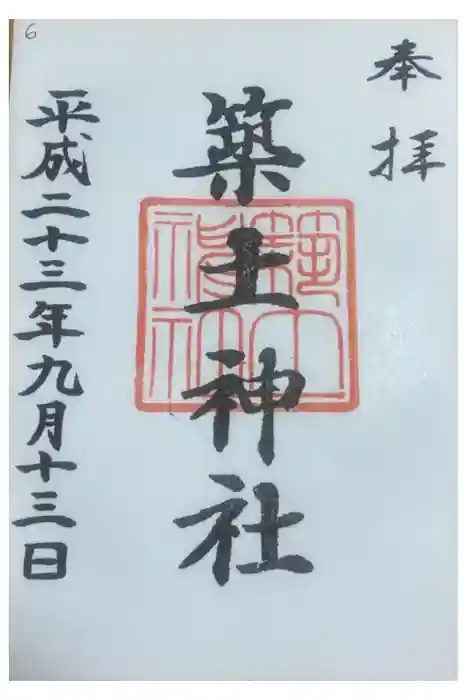 6
奉拝
築土神社
平成二十三年九月十三日